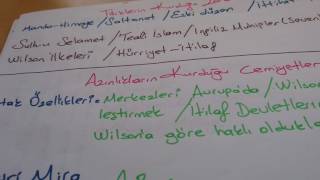 Manda-Himaye / Saltanat / Eski düzen / İttihat
Sulhu Selamet / Teali İslam / İngiliz Muhipler
Wilson ilkeleri / Hürriyet-İtilaf
Azınlıkların Kurduğu Cemiyetler
Özellikleri: Merkezleri Avrupa'da / Wilson
leştirmek / İtilaf Devletlerin
Wilsona göre haklı oldukla